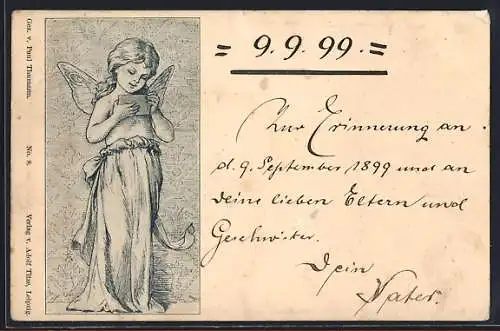 Gez. v. Paul Thumann.
No. 8.
Verlag v. Adolf Titze, Leipzig.
= 9. 9. 99. =
Zur Erinnerung an
d. 9. September 1899 und an
deine lieben Eltern und
Geschwister.
Dein
Vater.